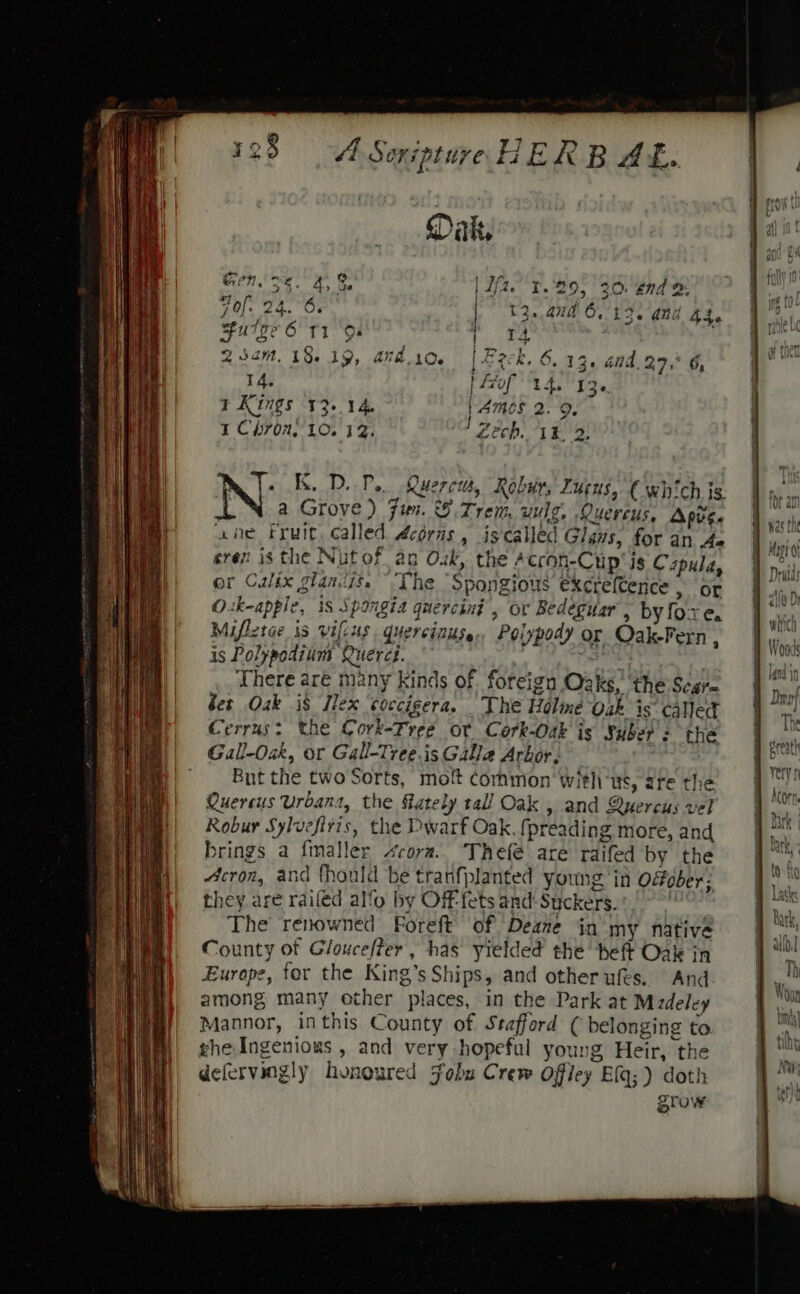 128 A Scripture HERBAL.
Oak,
Gen. 35. 4, 8.
Jos. 24. 6.
Judge 6 11 9.
2 Sam. 18. 19, and 10.
14.
1 Kings 13. 14.
1 Chron. 10. 12.
Isa. 1. 29, 30. and 2.
13. and 6. 13. and 44.
14
Ezek. 6. 13. and 27. 6,
Hos 14. 13.
Amos 2. 9.
Zech. 11. 2.
N. K. D. P. Quercus, Robur, Lucus, (which is
a Grove) Jun. & Trem. vulg. Quercus,
Fruit, called Acorns, is called Glans, for an A-
cron is the Nut of an Oak, the Acron-Cup is Capula,
or Calix glandis. The Spongious excrescence, or
Oak-apple, is Spongia quercini, or Bedeguar, by some.
Misletoe is viscus quercinus,, Polypody or Oak-Fern,
is Polypodium Querci.
There are many kinds of foreign Oaks, the Scar-
let Oak is Ilex coccigera. The Holme Oak is called
Cerrus: the Cork-Tree or Cork-Oak is Suber: the
Gall-Oak, or Gall-Tree is Galla Arbor.
But the two Sorts, most common with us, are the
Quercus Urbana, the stately tall Oak, and Quercus vel
Robur Sylvestris, the Dwarf Oak, spreading more, and
brings a smaller Acorn. These are raised by the
Acron, and should be transplanted young in October;
they are raised also by Off-sets and Suckers.
The renowned Forest of Deane in my native
County of Gloucester, has yielded the best Oak in
Europe, for the King's Ships, and other uses. And
among many other places, in the Park at Madeley
Mannor, in this County of Stafford (belonging to
the Ingenious, and very hopeful young Heir, the
deservingly honoured John Crew Offley Esq;) doth
grow